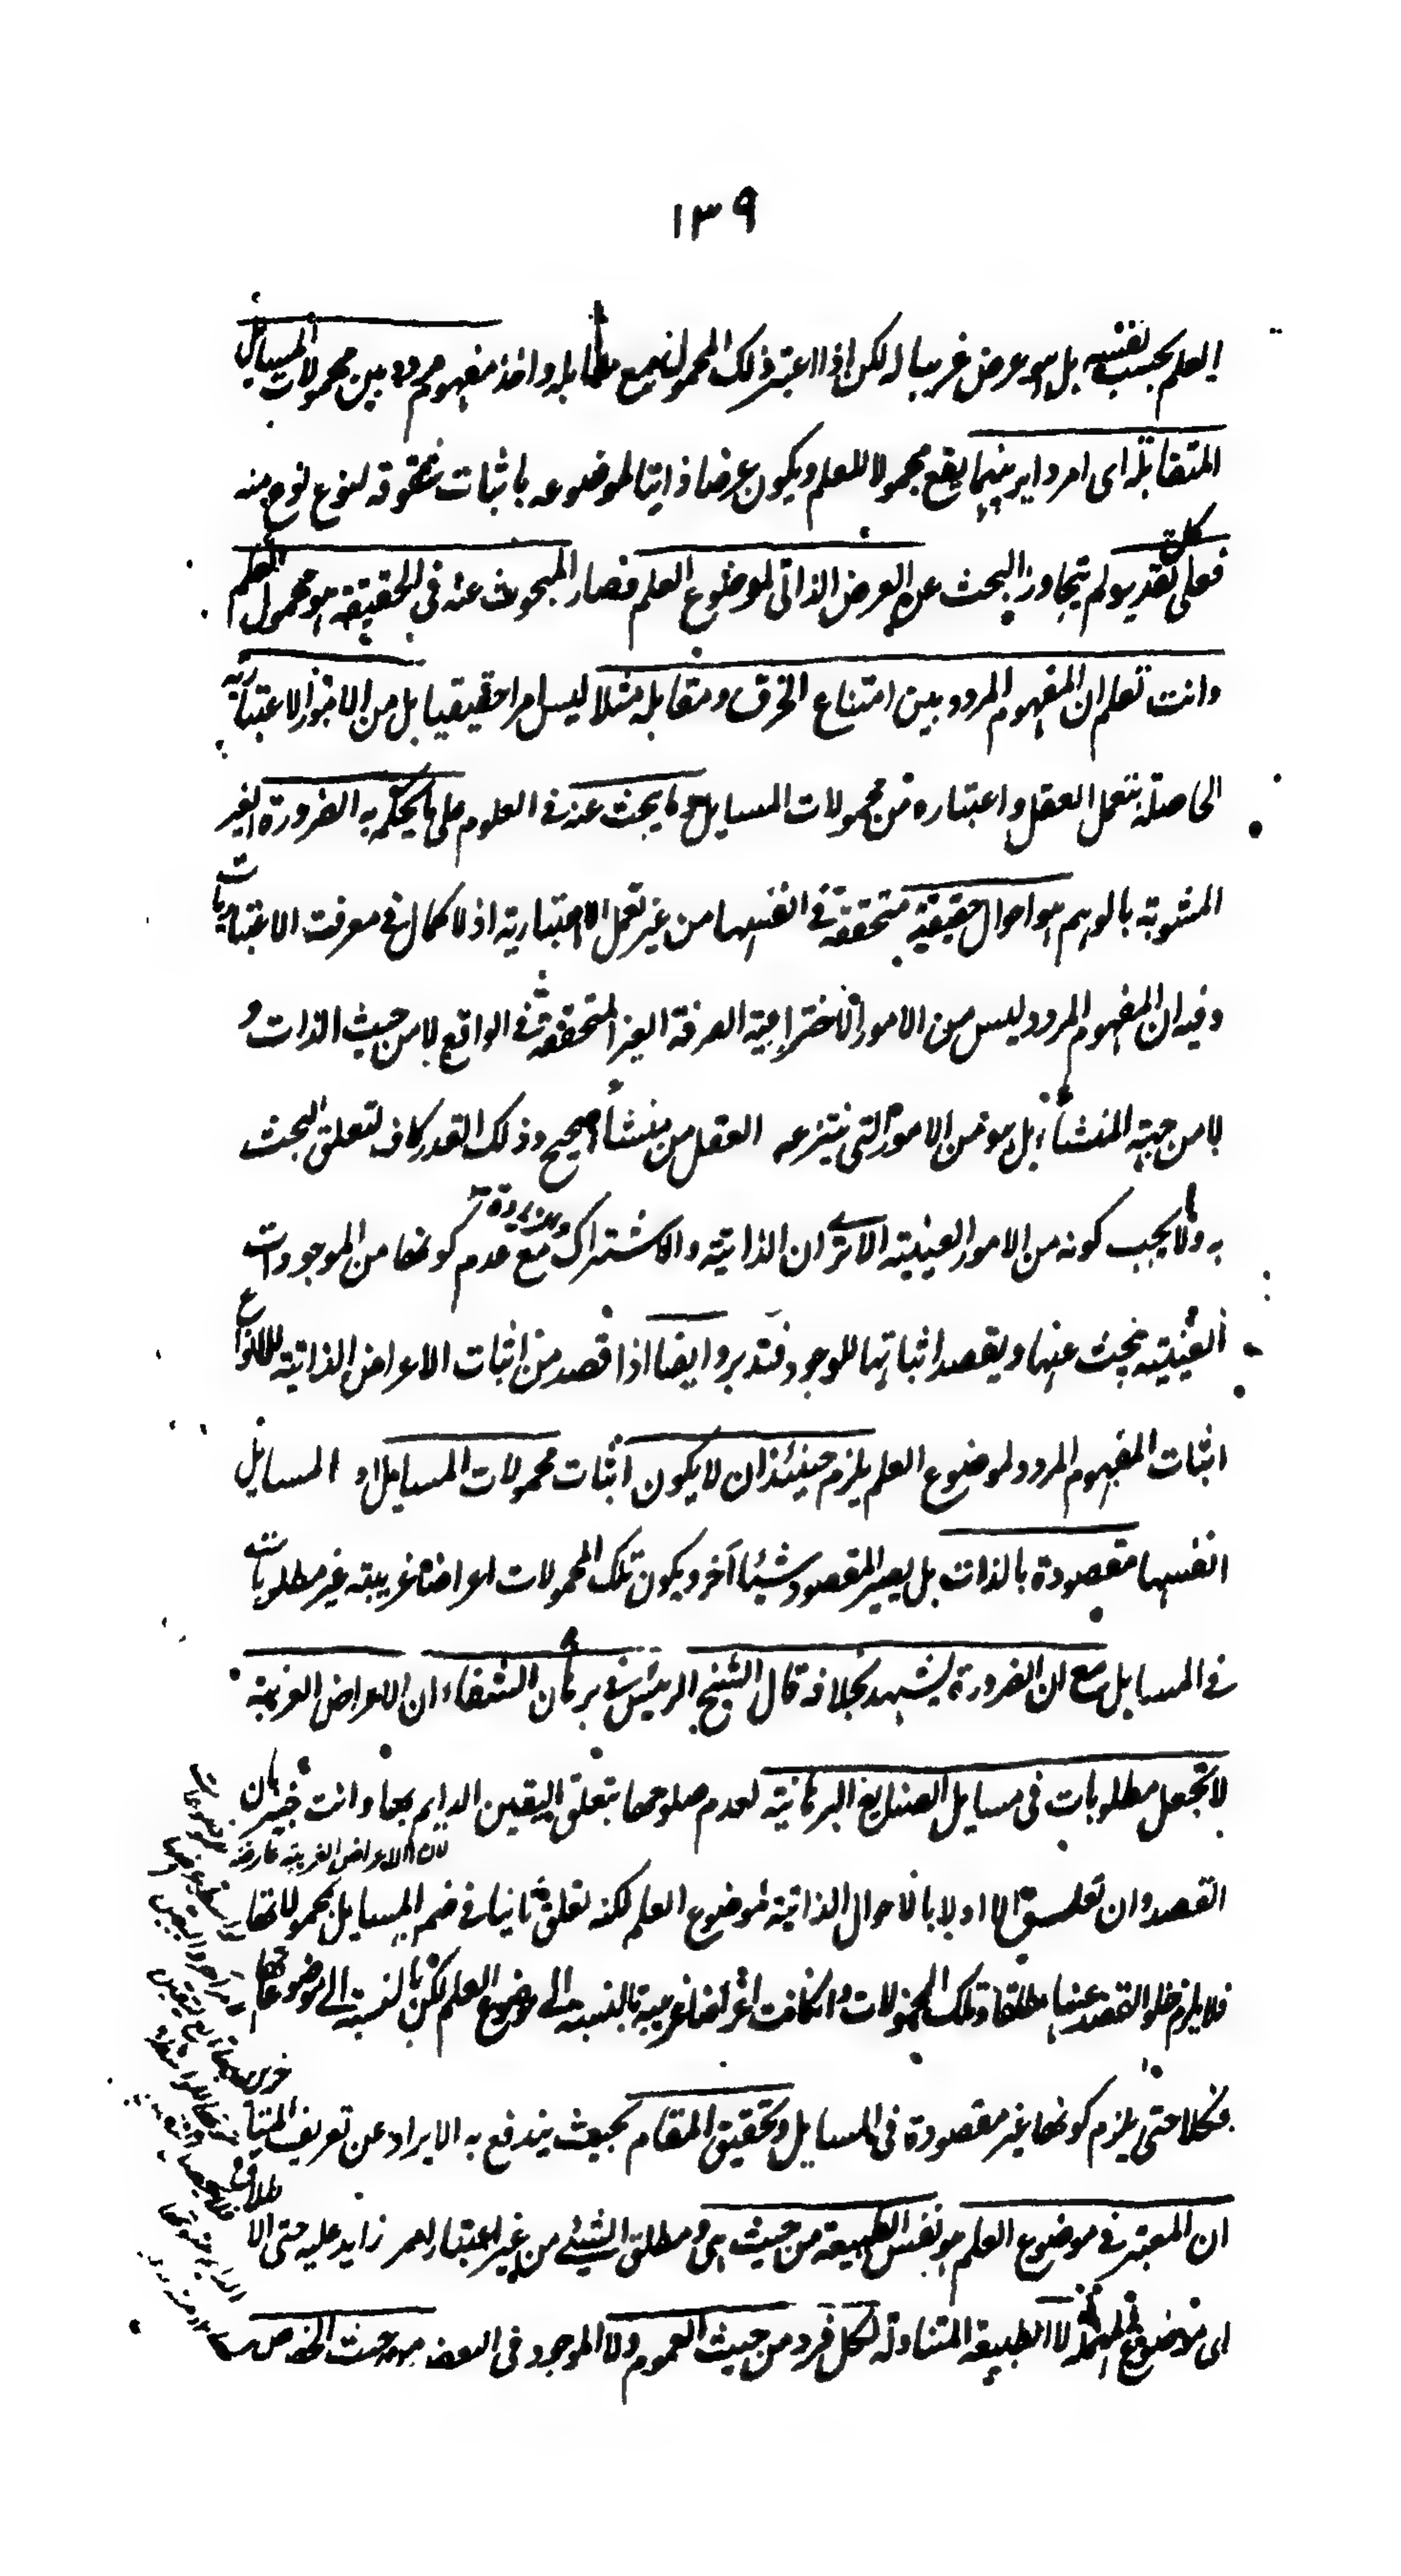 ١٣٩
العلم بحسب نفسه بل هو عرض غريب له لكن اذا اعتبر ذلك المحمول مع مقابله واخذ مفهوم مردد بين محمولات المسايل
المتقابلة اى امر داير بينهما يقع محمولا للعلم ويكون عرضا ذاتيا لموضوعه باثبات شقوقه لنوع نوع منه
فعلى كل تقدير لم يتجاوز البحث عن العرض الذاتى لموضوع العلم فصار المبحوث عنه فى الحقيقة هو محمول العلم
وانت تعلم ان المفهوم المردد بين امتناع الخرق ومقابله مثلا ليس امرا حقيقيا بل من الامور الاعتبارية
الحاصلة بتعمل العقل واعتباره من محمولات المسايل وما يبحث عنه فى العلوم على ما يحكم به الضرورة الغير
المشوبة بالوهم هو احوال حقيقية متحققة فى انفسها من غير تعمل الاعتبارية اذ لا كمال فى معرفت الاعتباريات
وفيه ان المفهوم المردد ليس من الامور الاختراعية الصرفة الغير المتحققة فى الواقع لا من حيث الذات و
لا من جهة المنشأ بل هو من الامور التى ينتزعه العقل من منشأ صحيح وذلك القدر كاف لتعلق البحث
به ولا يجب كونه من الامور العينية الا ترى ان الذاتية والاشتراك مع عدم كونها من الموجودات
العينية يبحث عنها ويقصد اثباتها للموجود فتدبر وايضا اذا قصد من اثبات الاعراض الذاتية للانواع
اثبات المفهوم المردد لموضوع العلم يلزم حينئذ ان لا يكون اثبات محمولات المسايل او المسايل
انفسها مقصودة بالذات بل يصير المقصود شيئا آخر ويكون تلك المحمولات اعراضا غريبة غير مطلوبات
فى المسايل مع ان الضرورة يشهد بخلافه قال الشيخ الرئيس فى برهان الشفاء ان الاعراض الغريبة
لا تجعل مطلوبات فى مسايل الصنايع البرهانية لعدم صلوحها بتعلق اليقين الدايم بها وانت خبير بان
لان الاعراض الغريبة عارضة
القصد وان تعلق اولا بالاحوال الذاتية لموضوع العلم لكنه تعلق ثانيا فى ضم المسايل بمحمولاتها
فلا يلزم خلو القصد عنها مطلقا وتلك المحمولات وان كانت اعراضا غريبة بالنسبة الى موضوع العلم لكن بالنسبة الى موضوعاتها
فكلا حتى يلزم كونها غير مقصودة فى المسايل وتحقيق المقام بحيث يندفع به الايراد عن تعريف
ان المعتبر فى موضوع العلم هو نفس الطبيعة من حيث هى ومطلق الشيئ من غير اعتبار امر زايد عليه حتى الا
اى موضوع المهملة لا الطبيعة المتناولة لكل فرد من حيث العموم ولا الموجود فى البعض من حيث الخصوص